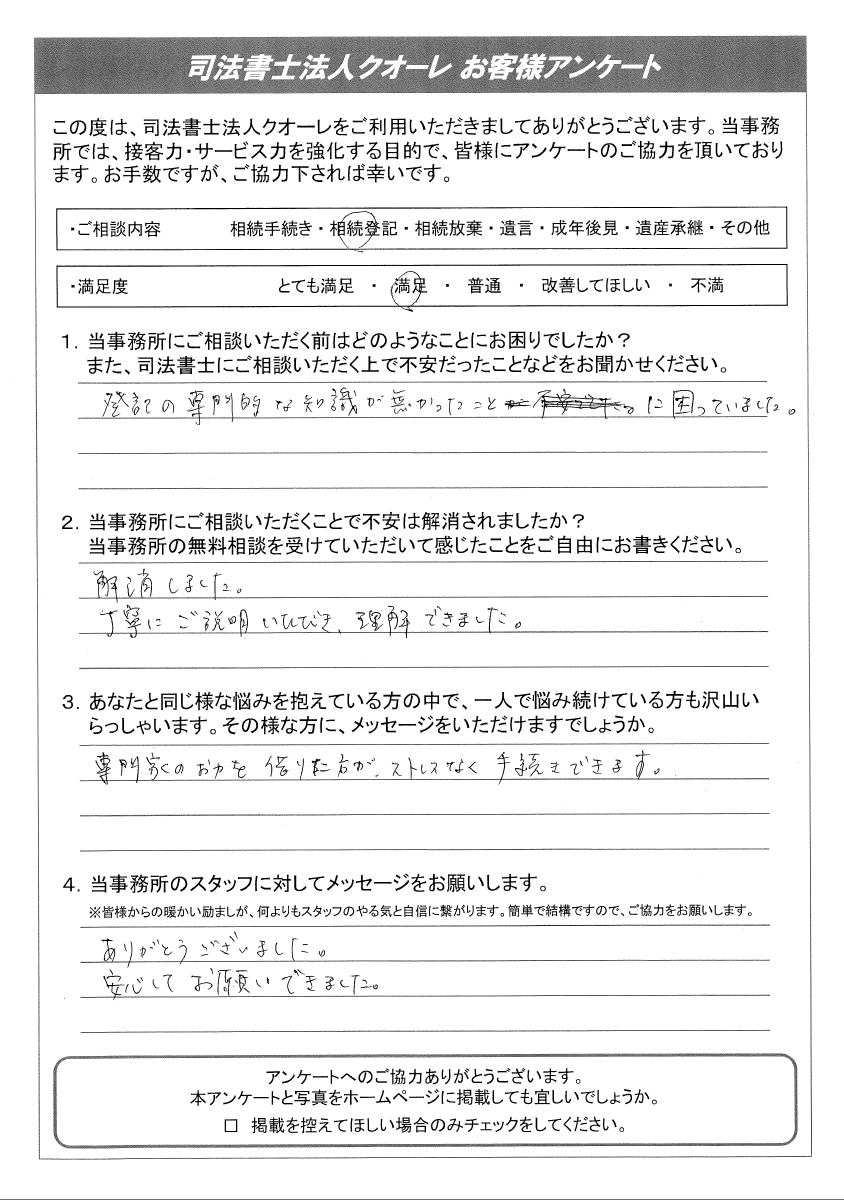 司法書士法人クオーレ お客様アンケート
この度は、司法書士法人クオーレをご利用いただきましてありがとうございます。当事務
所では、接客力・サービス力を強化する目的で、皆様にアンケートのご協力を頂いており
ます。お手数ですが、ご協力下されば幸いです。
・ご相談内容 相続手続き・相続登記・相続放棄・遺言・成年後見・遺産承継・その他
・満足度 とても満足 ・ 満足 ・ 普通 ・ 改善してほしい ・ 不満
1. 当事務所にご相談いただく前はどのようなことにお困りでしたか?
また、司法書士にご相談いただく上で不安だったことなどをお聞かせください。
登記の専門的な知識が無かったことに困っていました。
2. 当事務所にご相談いただくことで不安は解消されましたか?
当事務所の無料相談を受けていただいて感じたことをご自由にお書きください。
解消しました。
丁寧にご説明いただき、理解できました。
3. あなたと同じ様な悩みを抱えている方の中で、一人で悩み続けている方も沢山い
らっしゃいます。その様な方に、メッセージをいただけますでしょうか。
専門家のお力を借りた方が、ストレスなく手続きできます。
4. 当事務所のスタッフに対してメッセージをお願いします。
※皆様からの暖かい励ましが、何よりもスタッフのやる気と自信に繋がります。簡単で結構ですので、ご協力をお願いします。
ありがとうございました。
安心してお願いできました。
アンケートへのご協力ありがとうございます。
本アンケートと写真をホームページに掲載しても宜しいでしょうか。
□ 掲載を控えてほしい場合のみチェックをしてください。